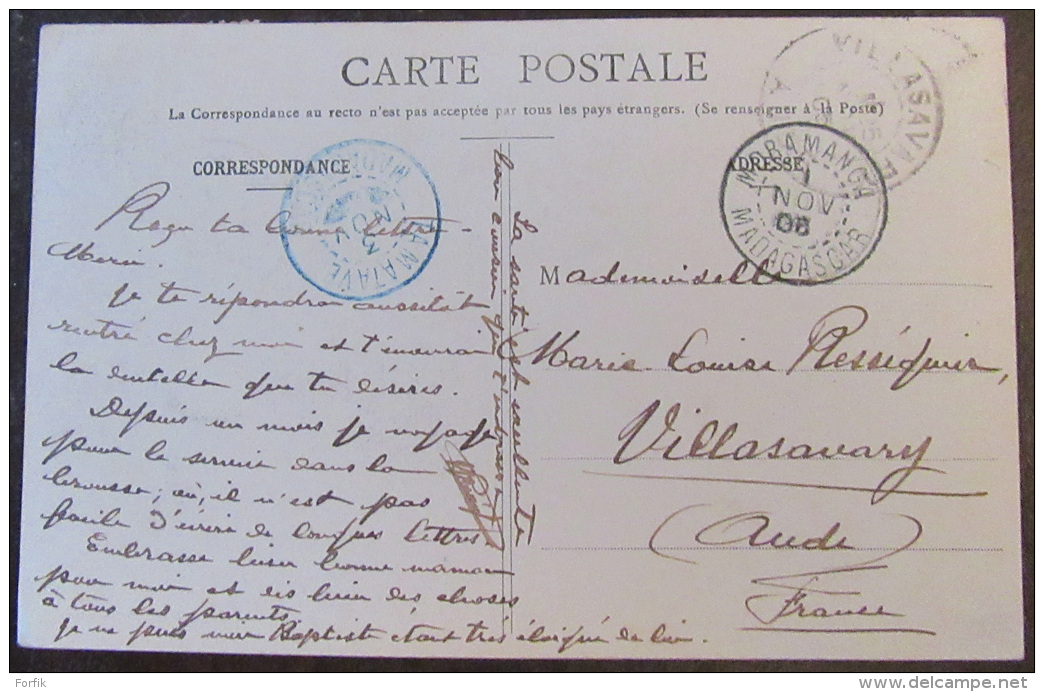 CARTE POSTALE
La Correspondance au recto n'est pas acceptée par tous les pays étrangers. (Se renseigner à la Poste)
CORRESPONDANCE
ADRESSE
VILLASAVARY
MORAMANGA
1
NOV
06
MADAGASCAR
TAMATAVE
3
NOV
Reçu ta bonne lettre
Merci.
Je te répondrai aussitôt
rentré chez moi et t'enverrai
la dentelle que tu désires.
Depuis un mois je voyage
pour le service dans la
brousse, où, il n'est pas
facile d'écrire de longues lettres.
Embrasse bien bonne maman
pour moi et dis bien des choses
à tous les parents.
Je ne puis voir Baptiste étant très éloigné de lui.
La santé est excellente
bien
Mademoiselle
Marie Louise Rességuier,
Villasavary
(Aude)
France
Forfik
delcampe.net